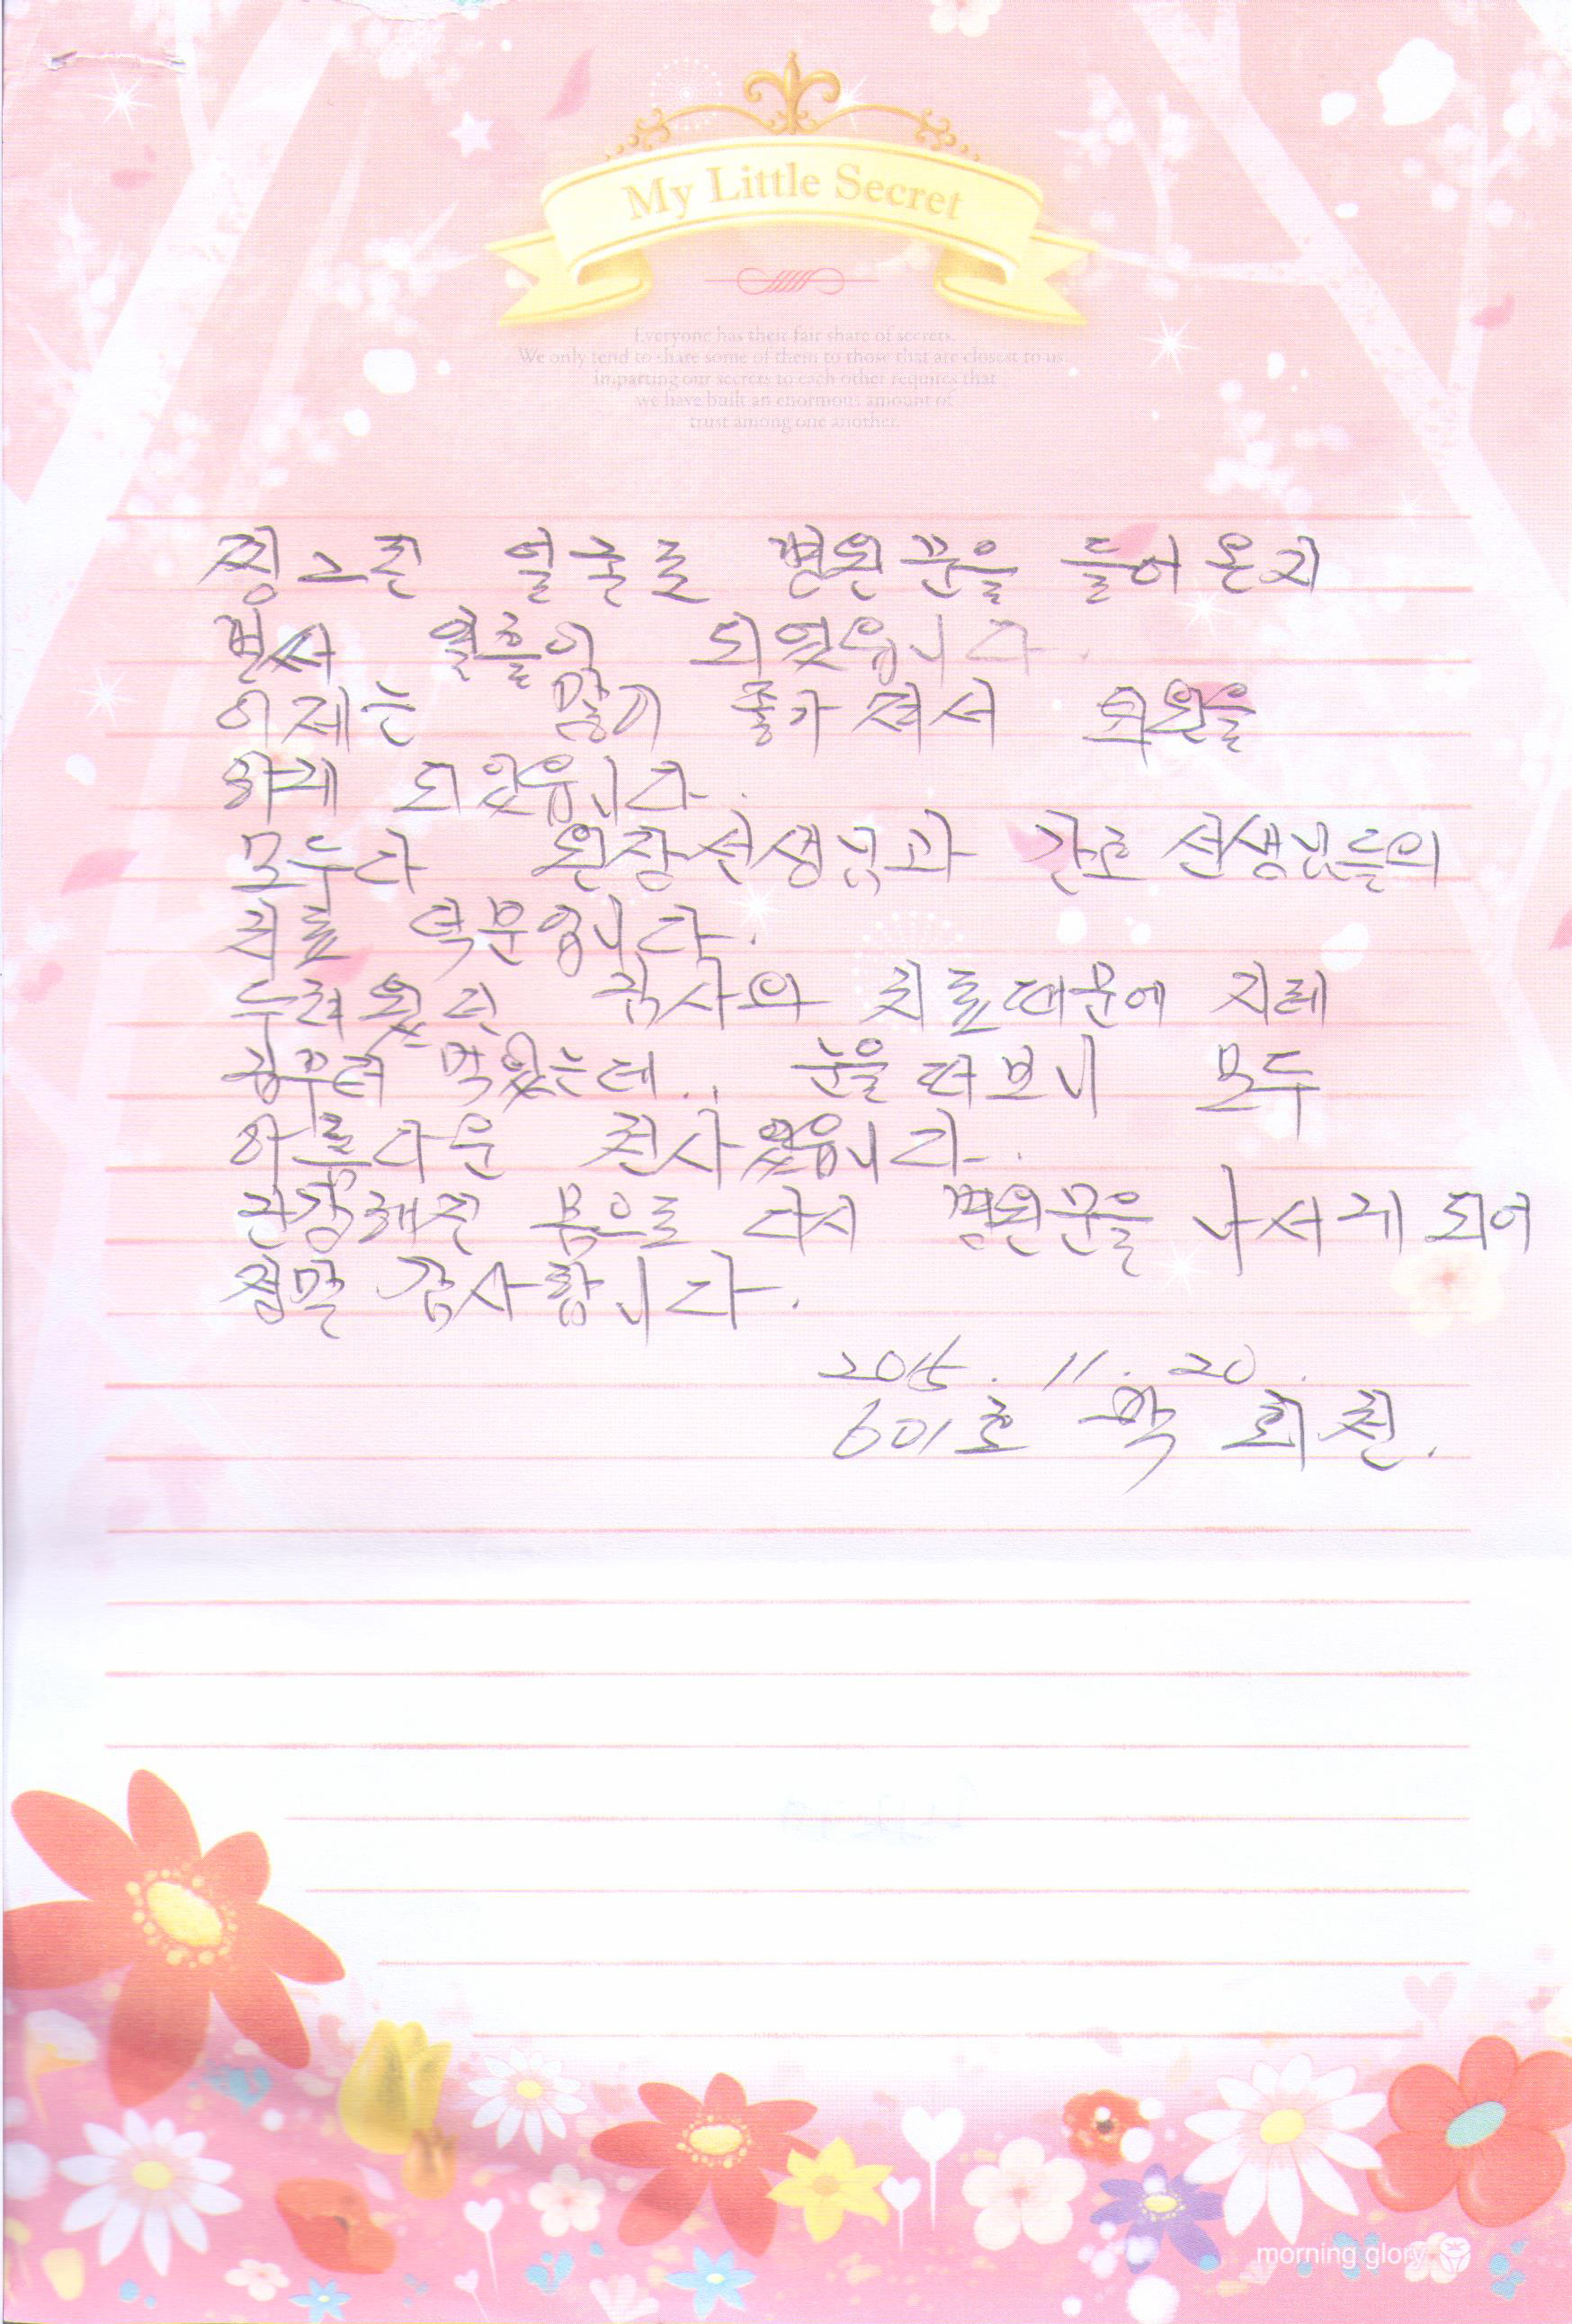 My Little Secret
Everyone has their fair share of secrets.
We only tend to share some of them to those that are closest to us,
imparting our secrets to each other requires that
we have built an enormous amount of
trust among one another.
찡그린 얼굴로 병원문을 들어온지
벌써 열흘이 되었읍니다.
이제는 많이 좋아져서 퇴원을
하게 되었읍니다.
모두다 원장선생님과 간호선생님들의
치료 덕분입니다.
두려웠던 의 치료때문에 지레
겁부터 먹었는데.. 눈을 떠보니 모두
아름다운 천사였읍니다.
건강해진 몸으로 다시 병원문을 나서게 되어
정말 감사합니다.
2015. 11. 20.
601호 박 희 진.
morning glory